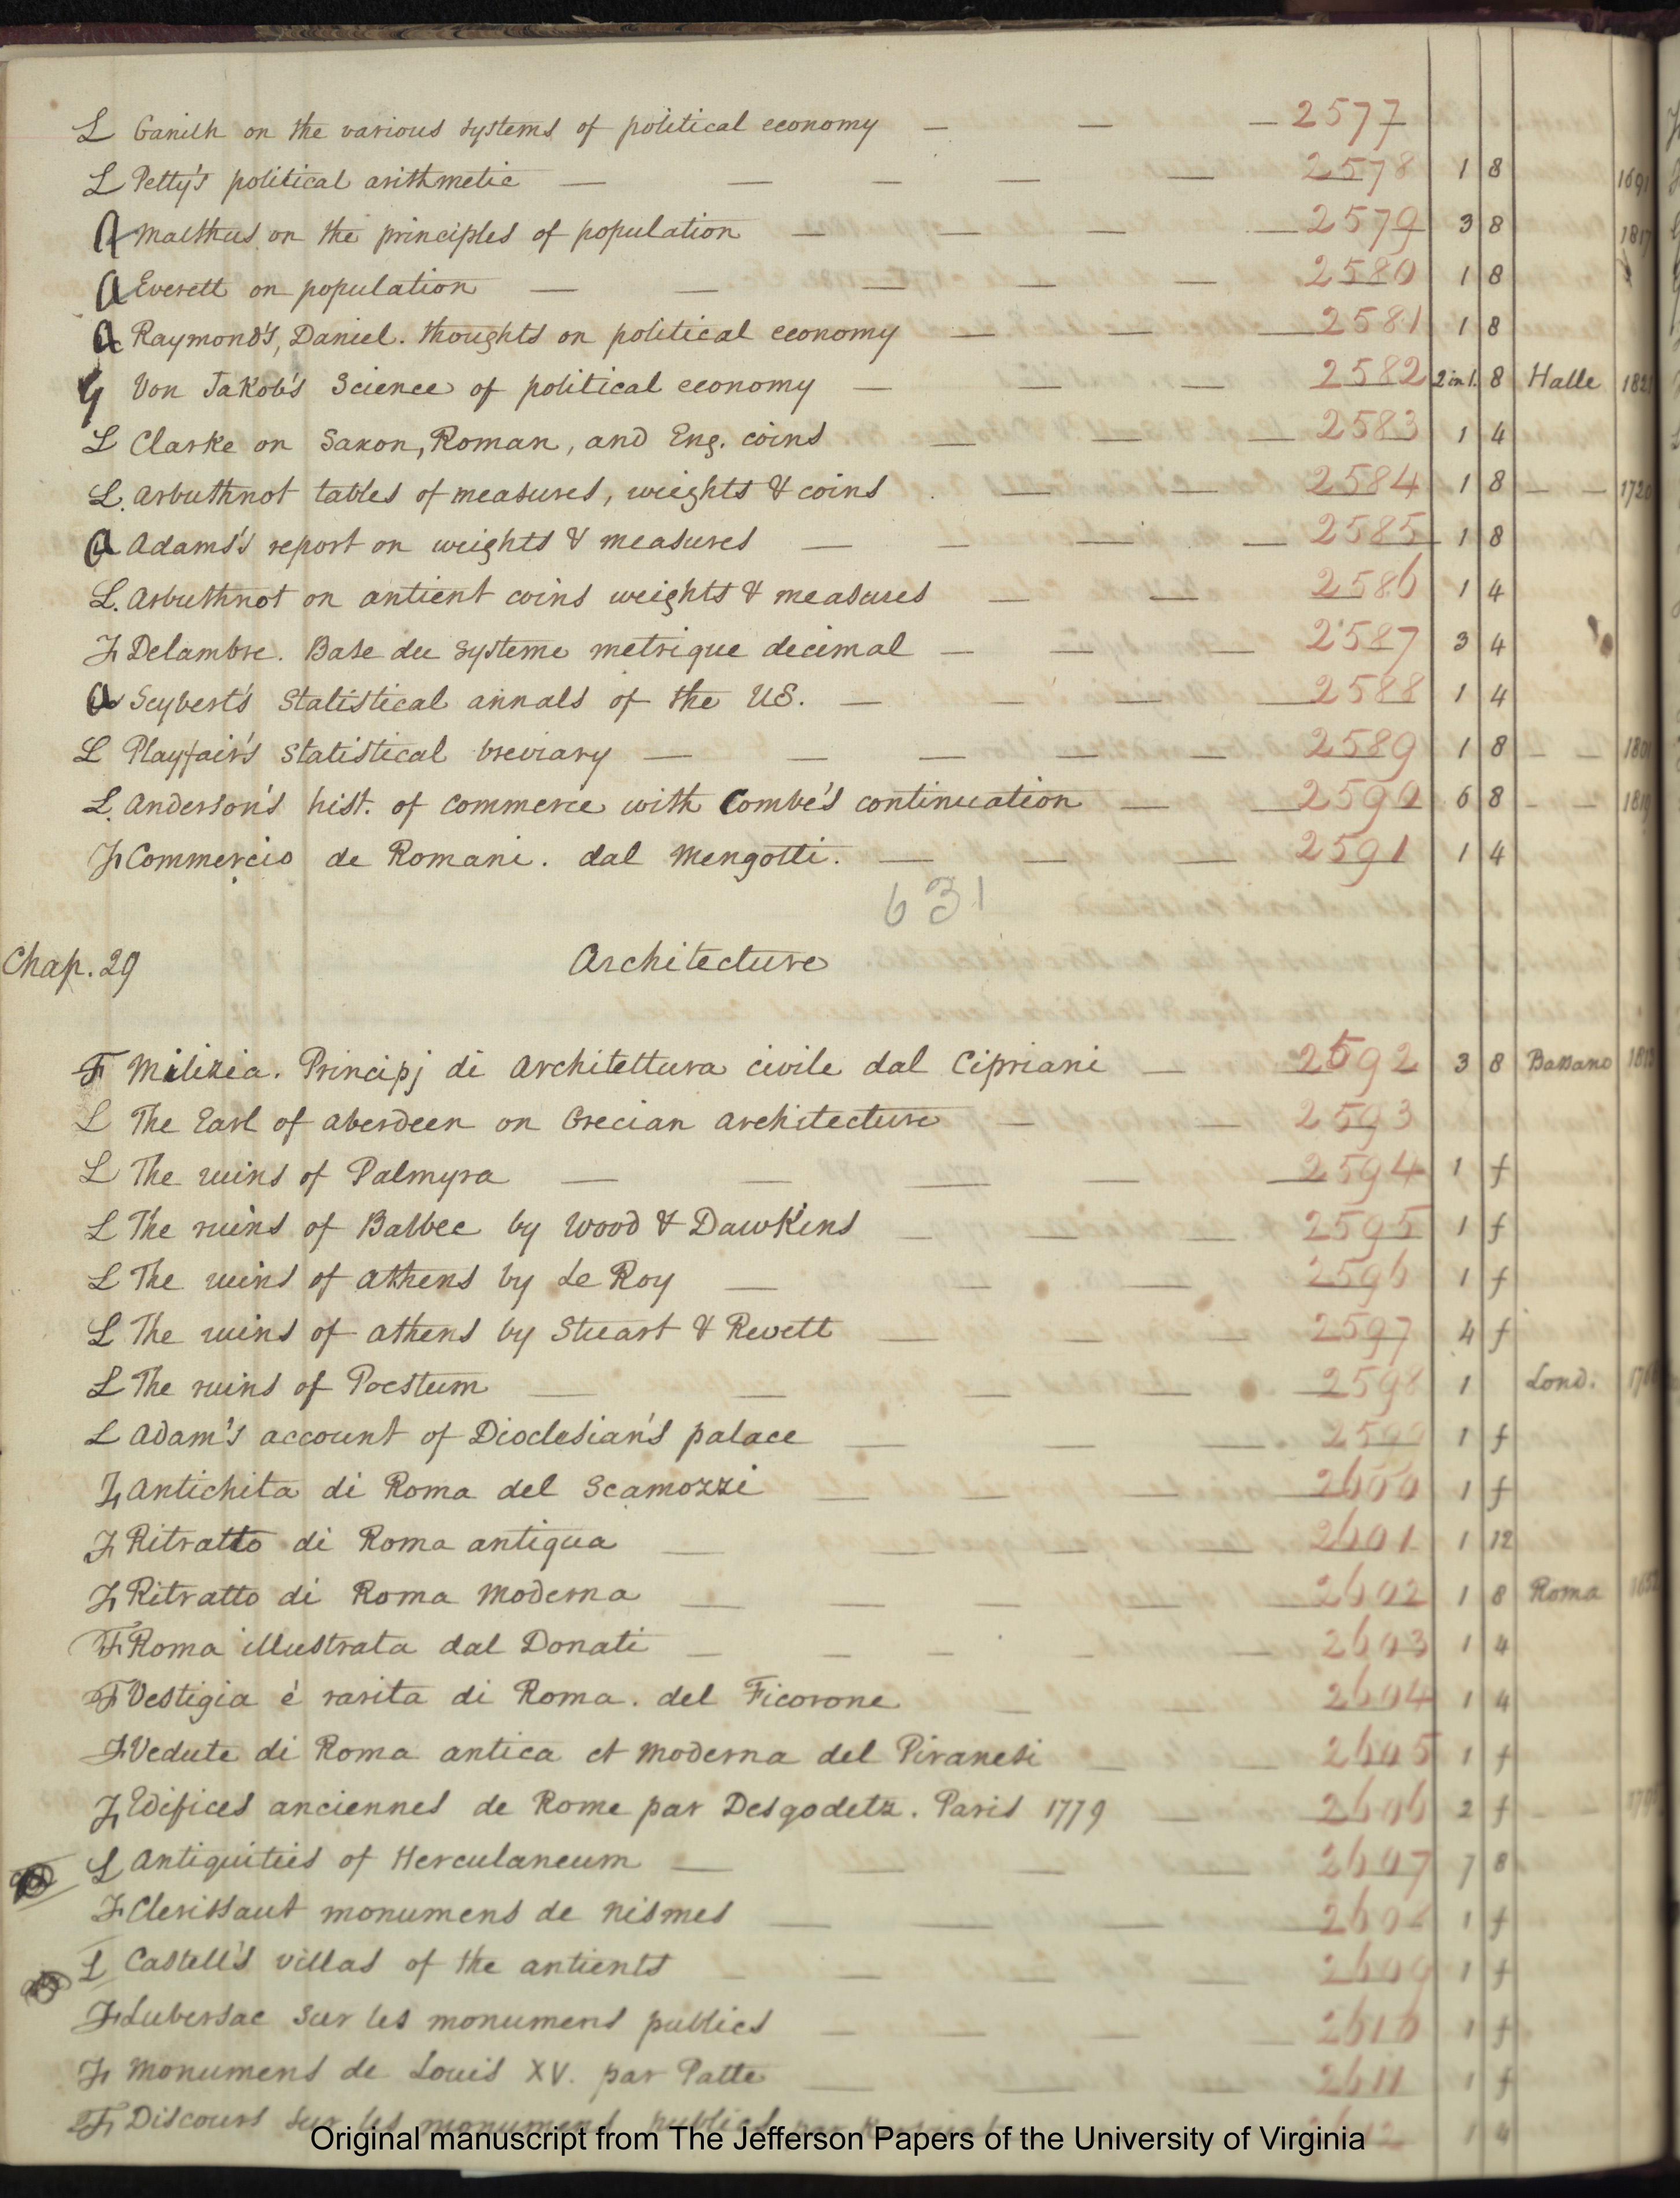 L Ganilh on the various systems of political economy — — — 2577
L Petty's political arithmetic — — — — — 2578 1 8 1691
A Malthus on the principles of population — — — — 2579 3 8 1817
A Everett on population — — — — — 2580 1 8
A Raymond's, Daniel. thoughts on political economy — — — 2581 1 8
G Von Jakob's Science of political economy — — — 2582 2 in 1. 8 Halle
L Clarke on Saxon, Roman, and Eng. coins — — — 2583 1 4
L. Arbuthnot tables of measures, wieghts & coins — — 2584 1 8 — — 1720
A Adams's report on weights & measures — — — — 2585 1 8
L. Arbuthnot on antient coins weights & measures — — 2586 1 4
F Delambre. Base du Systeme metrique decimal — — — 2587 3 4
A Seybert's Statistical annals of the US. — — — — 2588 1 4
L Playfair's Statistical breviary — — — — — 2589 1 8 — —
L. Anderson's hist. of commerce with Combe's continuation — — 2590 6 8 — —
F Commercio de Romani. dal Mengotti. — — — 2591 1 4
631
Chap. 29 Architecture
F Milizia. Principj di Architettura civile dal Cipriani — 2592 3 8 Bassano
L The Earl of Aberdeen on Grecian Architecture — — 2593
L The ruins of Palmyra — — — — — 2594 1 f
L The ruins of Balbec by Wood & Dawkins — — — 2595 1 f
L The ruins of Athens by Le Roy — — — 2596 1 f
L The ruins of Athens by Stuart & Revett — — — 2597 4 f
L The ruins of Poestum — — — — — 2598 1 Lond.
L Adam's account of Dioclesian's palace — — — 2599 1 f
F Antichita di Roma del Scamozzi — — — — 2600 1 f
F Ritratto di Roma antiqua — — — — 2601 1 12
F Ritratto di Roma Moderna — — — — 2602 1 8 Roma
F Roma illustrata dal Donati — — — — — 2603 1 4
F Vestigia è rarita di Roma. del Ficorone — — 2604 1 4
F Vedute di Roma antica et moderna del Piranesi — — 2605 1 f
F Edifices anciennes de Rome par Desgodetz. Paris 1779 — 2606 2 f — —
L Antiquities of Herculaneum — — — — 2607 7 8
F Clerissaut monumens de Nismes — — — 2608 1 f
L Castell's villas of the antients — — — — 2609 1 f
F Lubersac sur les monumens publics — — — — 2610 1 f
F Monumens de Louis XV. par Patte — — — — 2611 1 f
F Discours sur les monumens publics par 2612 1 4
Original manuscript from The Jefferson Papers of the University of Virginia